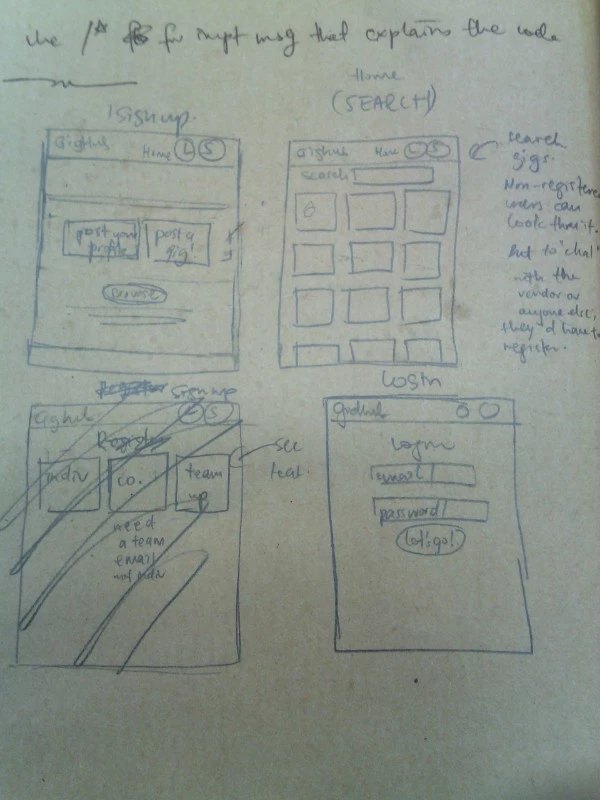 use /* for impt msg that explains the code
sign up.
Home
(SEARCH)
GigHub Home L S
post your profile
post a gig!
browse
GigHub Home L S
search
search gigs.
Non-registered
users can
look thru it.
But to "chat"
with the
vendor or
anyone else,
they'd have to
register.
Signup
GigHub L S
Register
indiv
co.
team up
need
a team
email
not indiv
see
text.
LOGIN
GigHub
Login
email
password
Let's go!